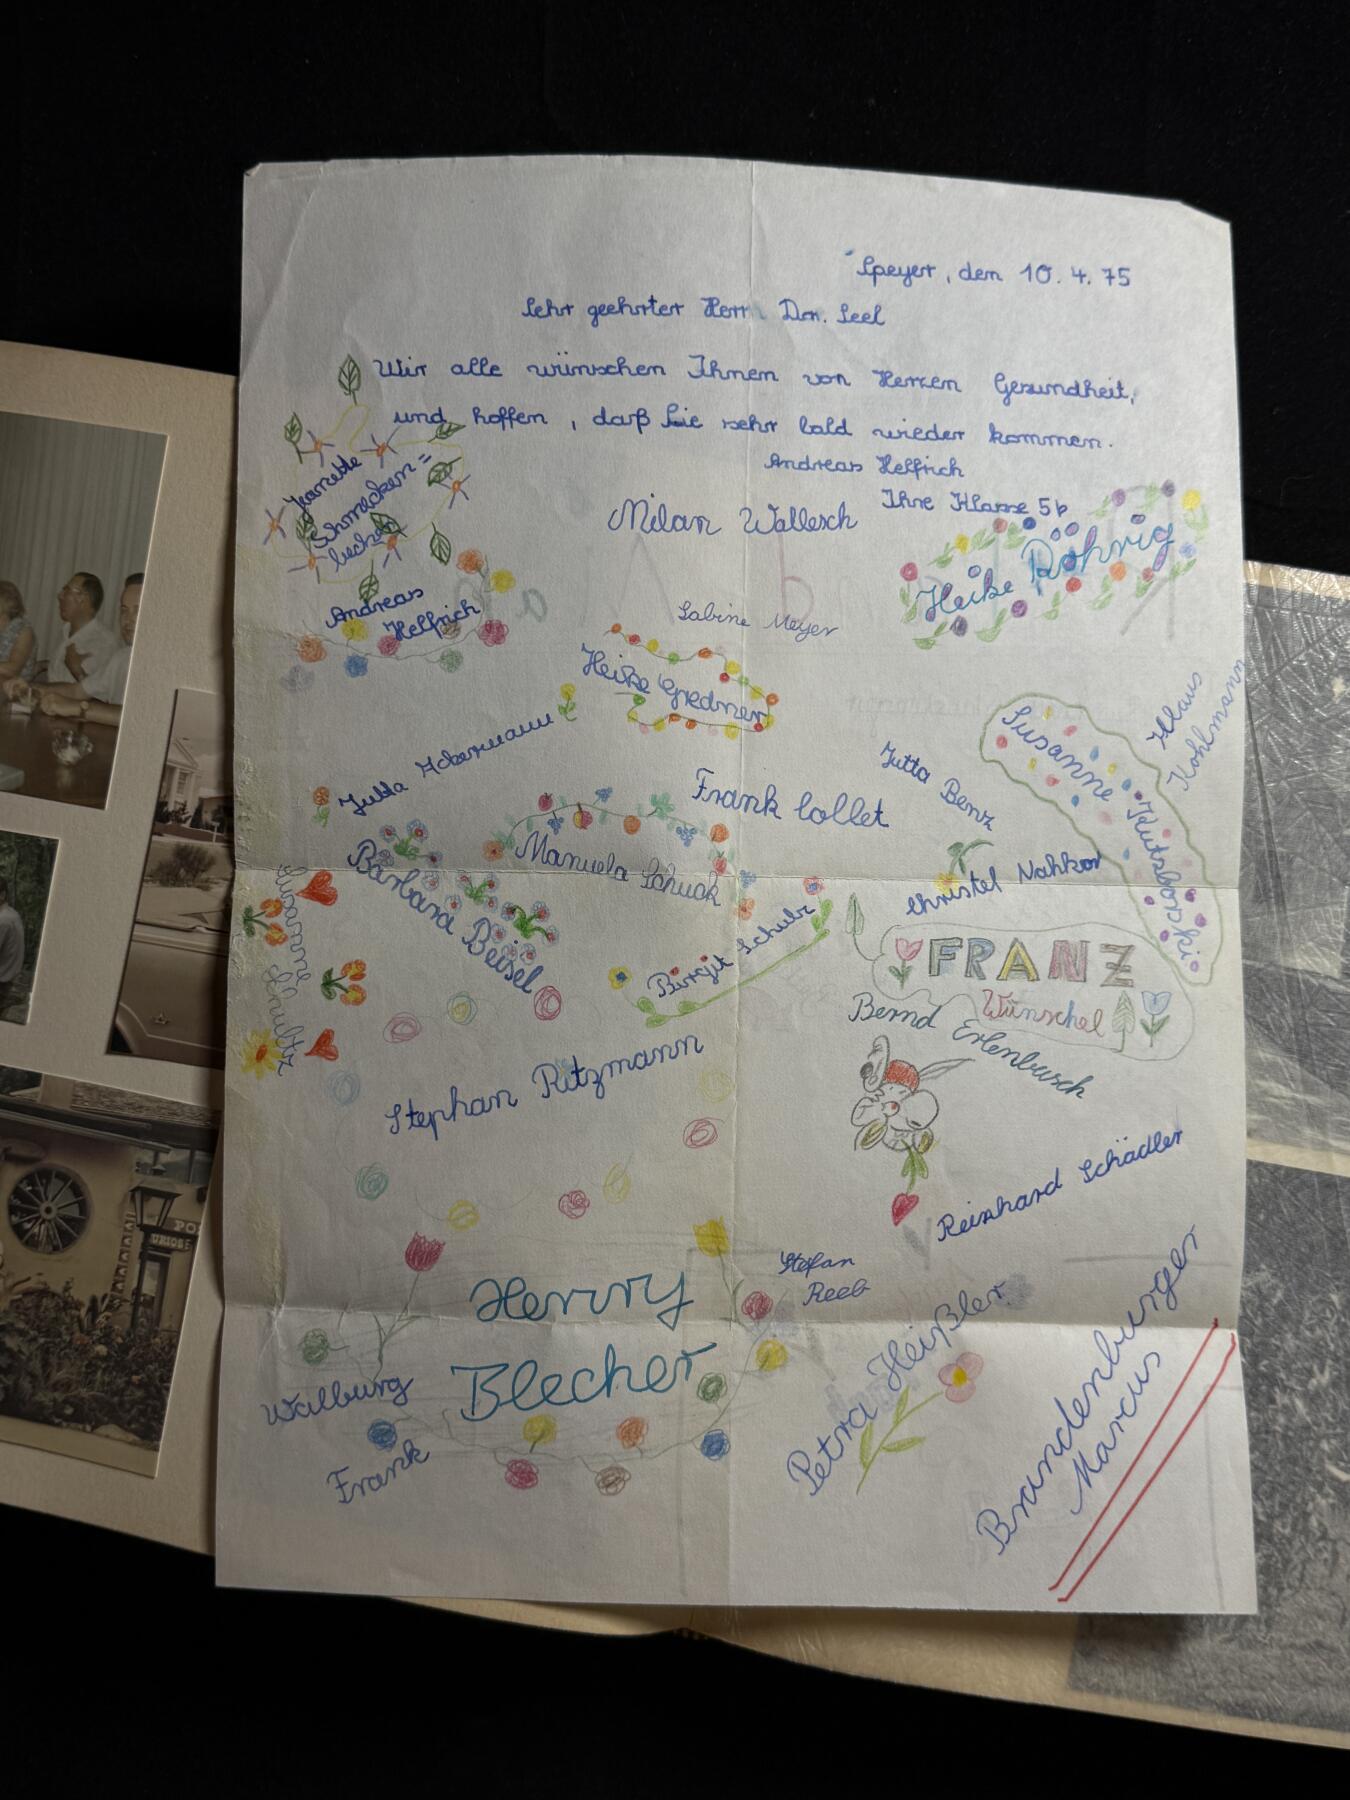 Speyer, den 10.4.75
Sehr geehrter Herr Dr. Seel
Wir alle wünschen Ihnen von Herzen Gesundheit,
und hoffen, daß Sie sehr bald wieder kommen.
Andreas Helfrich
Ihre Klasse 5b
Schmecken=
becher
Milan Wallesch
Heike Röhrig
Andreas
Helfrich
Sabine Meyer
Heike Gredner
Klaus
Kohlmann
Susanne
Jutta Ackermann
Jutta Benz
Frank Collet
Manuela Schuck
Barbara Beisel
Christel Nahkor
Birgit Schulz
Susanne Schultz
FRANZ
Wünschel
Bernd Erlenbusch
Stephan Ritzmann
Reinhard Schädler
Stefan
Reeb
Henry
Blecher
Walburg
Frank
Petra Heißler
Brandenburger
Marcus
PO